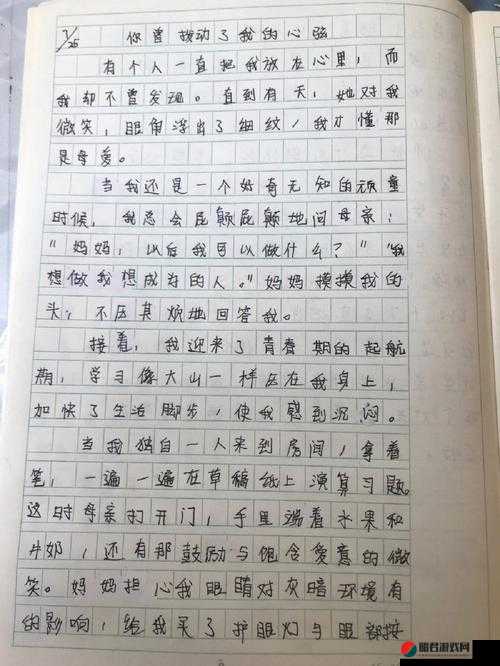 7/26 你曾拨动了我的心弦
有个人一直把我放在心里，而
我却不曾发现。直到有天，她对我
微笑，眼角浮出了细纹，我才懂那
是母爱。
当我还是一个好奇无知的顽童
时候，我总会屁颠屁颠地问母亲：
“妈妈，以后我可以做什么？”“我
想做我想成为的人。”妈妈摸摸我的
头，不厌其烦地回答我。
接着，我迎来了青春期的起航
期，学习像大山一样压在我身上，
加快了生活脚步，使我感到沉闷。
当我独自一人来到房间，拿着
笔，一遍一遍在草稿纸上演算习题。
这时母亲打开门，手里端着水果和
牛奶，还有那鼓励与饱含爱意的微
笑。妈妈担心我眼睛对灰暗环境有
的影响，给我买了护眼灯与眼部按
暗君游戏网